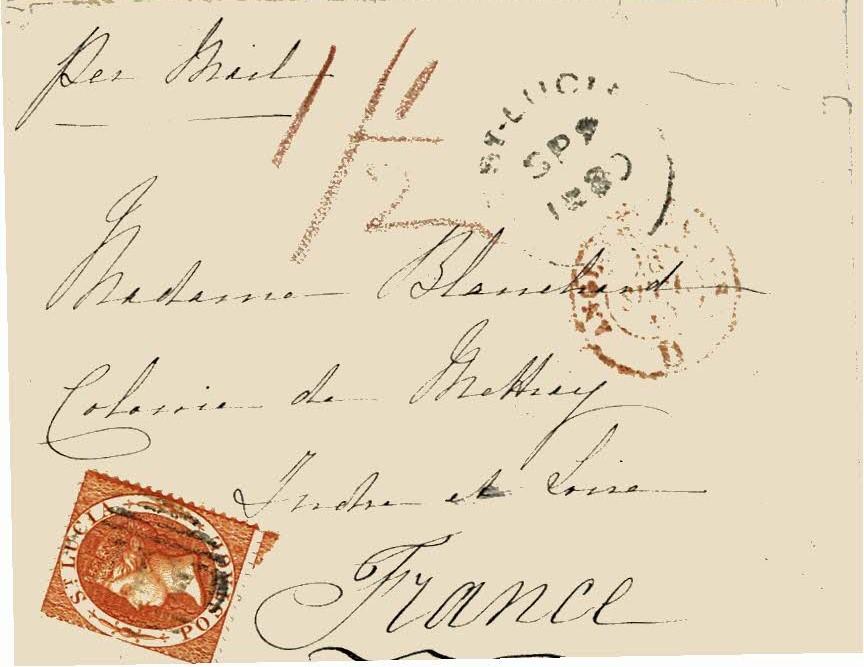 Per Mail
1/
1/2
ST-LUCIA
SP
Madame Blanchard
Colonie de Mettray
Indre et Loire
France
ST LUCIA POSTAGE